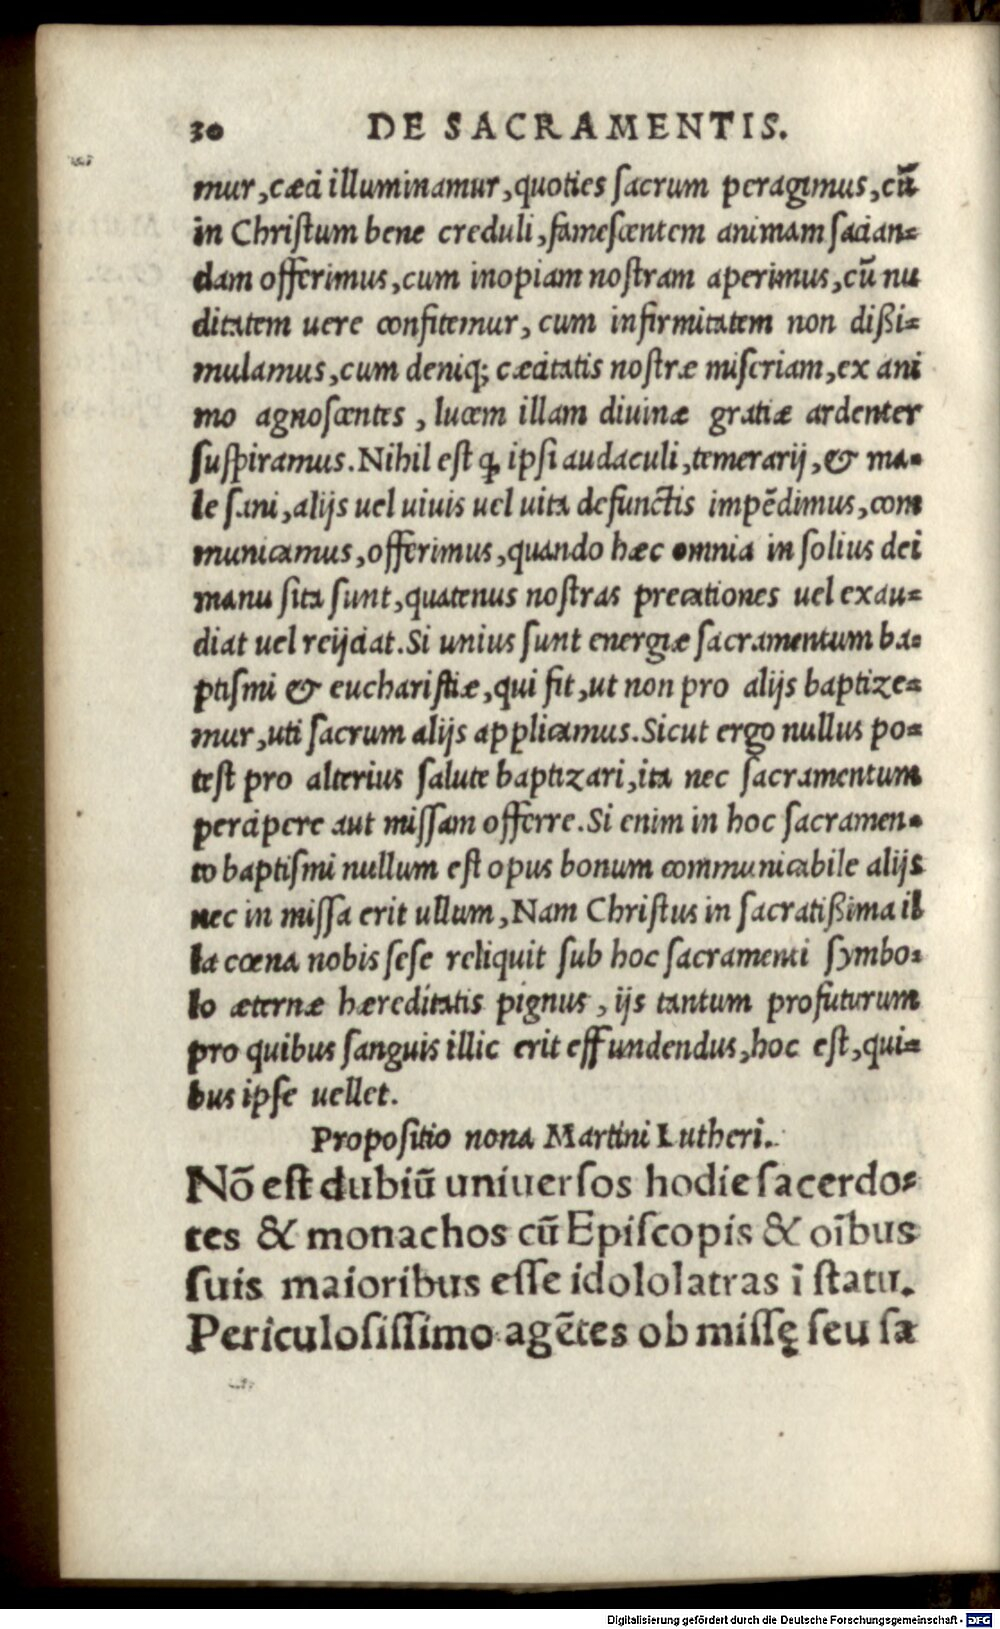 30 DE SACRAMENTIS.
mur, cæci illuminamur, quoties ſacrum peragimus, cū
in Chriſtum bene creduli, fameſcentem animam ſacian=
dam offerimus, cum inopiam noſtram aperimus, cū nu
ditatem uere confitemur, cum infirmitatem non dißi=
mulamus, cum deniq; cæcitatis noſtræ miſeriam, ex ani
mo agnoſcentes, lucem illam diuinæ gratiæ ardenter
ſuſpiramus. Nihil eſt ꝙ ipſi audaculi, temerarij, & ma=
le ſani, alijs uel uiuis uel uita defunctis impēdimus, com
municamus, offerimus, quando hæc omnia in ſolius dei
manu ſita ſunt, quatenus noſtras precationes uel exau=
diat uel reijciat. Si unius ſunt energiæ ſacramentum ba=
ptiſmi & euchariſtiæ, qui fit, ut non pro alijs baptize=
mur, uti ſacrum alijs applicamus. Sicut ergo nullus po=
teſt pro alterius ſalute baptizari, ita nec ſacramentum
percipere aut miſſam offerre. Si enim in hoc ſacramen=
to baptiſmi nullum eſt opus bonum communicabile alijs
nec in miſſa erit ullum, Nam Chriſtus in ſacratißima il
la cœna nobis ſeſe reliquit ſub hoc ſacramenti ſymbo=
lo æternæ hæreditatis pignus, ijs tantum profuturum
pro quibus ſanguis illic erit effundendus, hoc eſt, qui=
bus ipſe uellet.
Propoſitio nona Martini Lutheri.
Nō eſt dubiū uniuerſos hodie ſacerdo=
tes & monachos cū Epiſcopis & oībus
ſuis maioribus eſſe idololatras ī ſtatu.
Periculoſiſſimo agētes ob miſſę ſeu ſa
Digitalisierung gefördert durch die Deutsche Forschungsgemeinschaft - DFG